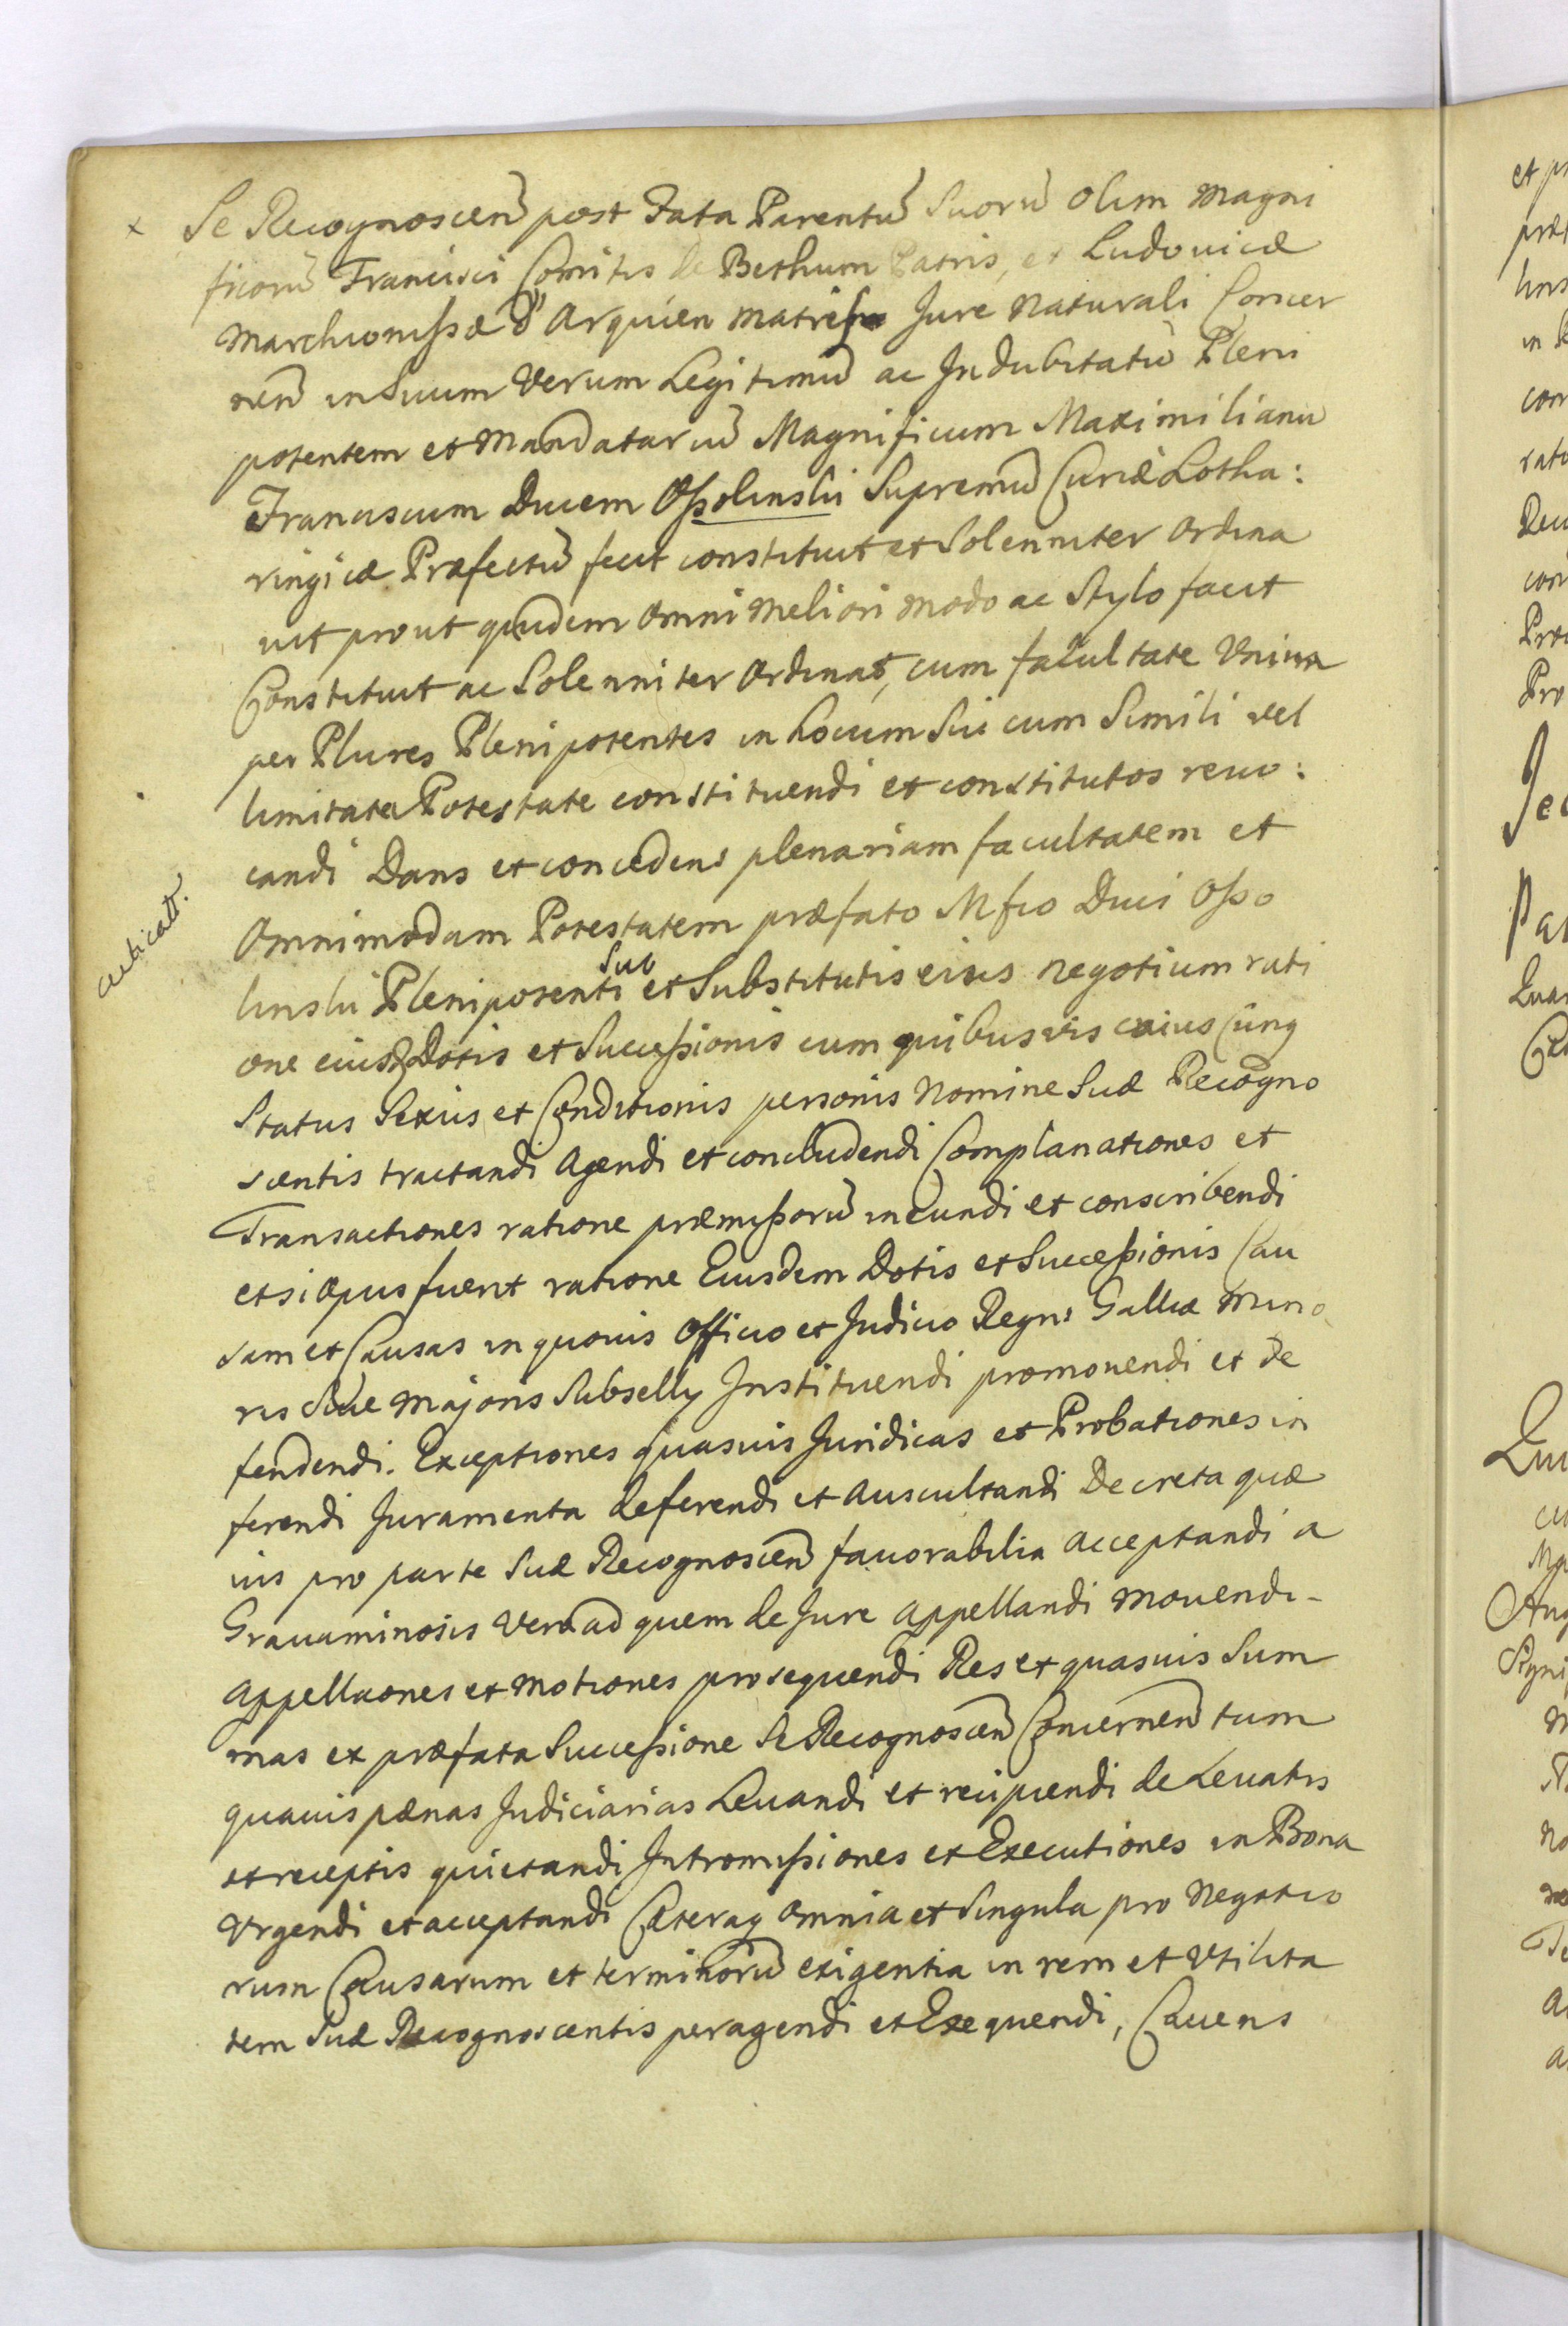 x Se Recognoscen̄ post Fata Parentū Suorū olim Magni
ficorū Francisci Comitis de Bethum Patris, et Ludovicæ
Marchionissæ d'Arquien Matris Jure Naturali Concer
nen̄ in Suum Verum Legitimū ac Indubitatū Pleni
potentem et Mandatariū Magnificum Maximilianū
Franciscum Ducem Ossolinski Supremū Curiæ Lotha:
ringicæ Præfectū fecit constituit et Solenniter Ordina
vit prout quidem Omni Meliori Modo ac Stylo facit
Constituit ac Solenniter Ordinat, cum facultate Unum
per Plures Plenipotentes in Locum Sui cum Simili vel
limitata Potestate constituendi et constitutos revo:
candi Dans et concedens plenariam facultatem et
Omnimodam Potestatem præfato Mfco Duci Osso
linski Plenipotenti Suo et Substitutis eius negotium rati
one eiusd Dotis et Successionis cum quibusvis cuius cunq
Status Sexus et Conditionis personis Nomine Suæ Recogno
scentis tractandi Agendi et concludendi Complanationes et
Transactiones ratione præmissorū ineundi et conscribendi
et si opus fuerit ratione Eiusdem Dotis et Successionis Cau
sam et Causas in quovis Officio et Judicio Regni Galliæ Mino
ris sive Majoris Subsellij Instituendi promovendi et de
fendendi. Exceptiones quasvis Juridicas et Probationes in
ferendi Juramenta deferendi et Auscultandi Decreta quæ
vis pro parte Suæ Recognoscen̄ favorabilia acceptandi a
Gravaminosis Vero ad quem de Jure Appellandi Movendi-
Appellaones et Motiones prosequendi Res et quasvis Sum
mas ex præfata Successione Se Recognoscen̄ Concernen̄ tum
quavis pænas Judiciarias Levandi et recipiendi de Levatis
et receptis quietandi Intromissiones et Executiones in Bona
Urgendi et acceptandi Cæteraq Omnia et Singula pro Negotio
rum Causarum et terminorū exigentia in rem et Utilita
tem Suæ Recognoscentis peragendi et Exequendi, Cavens